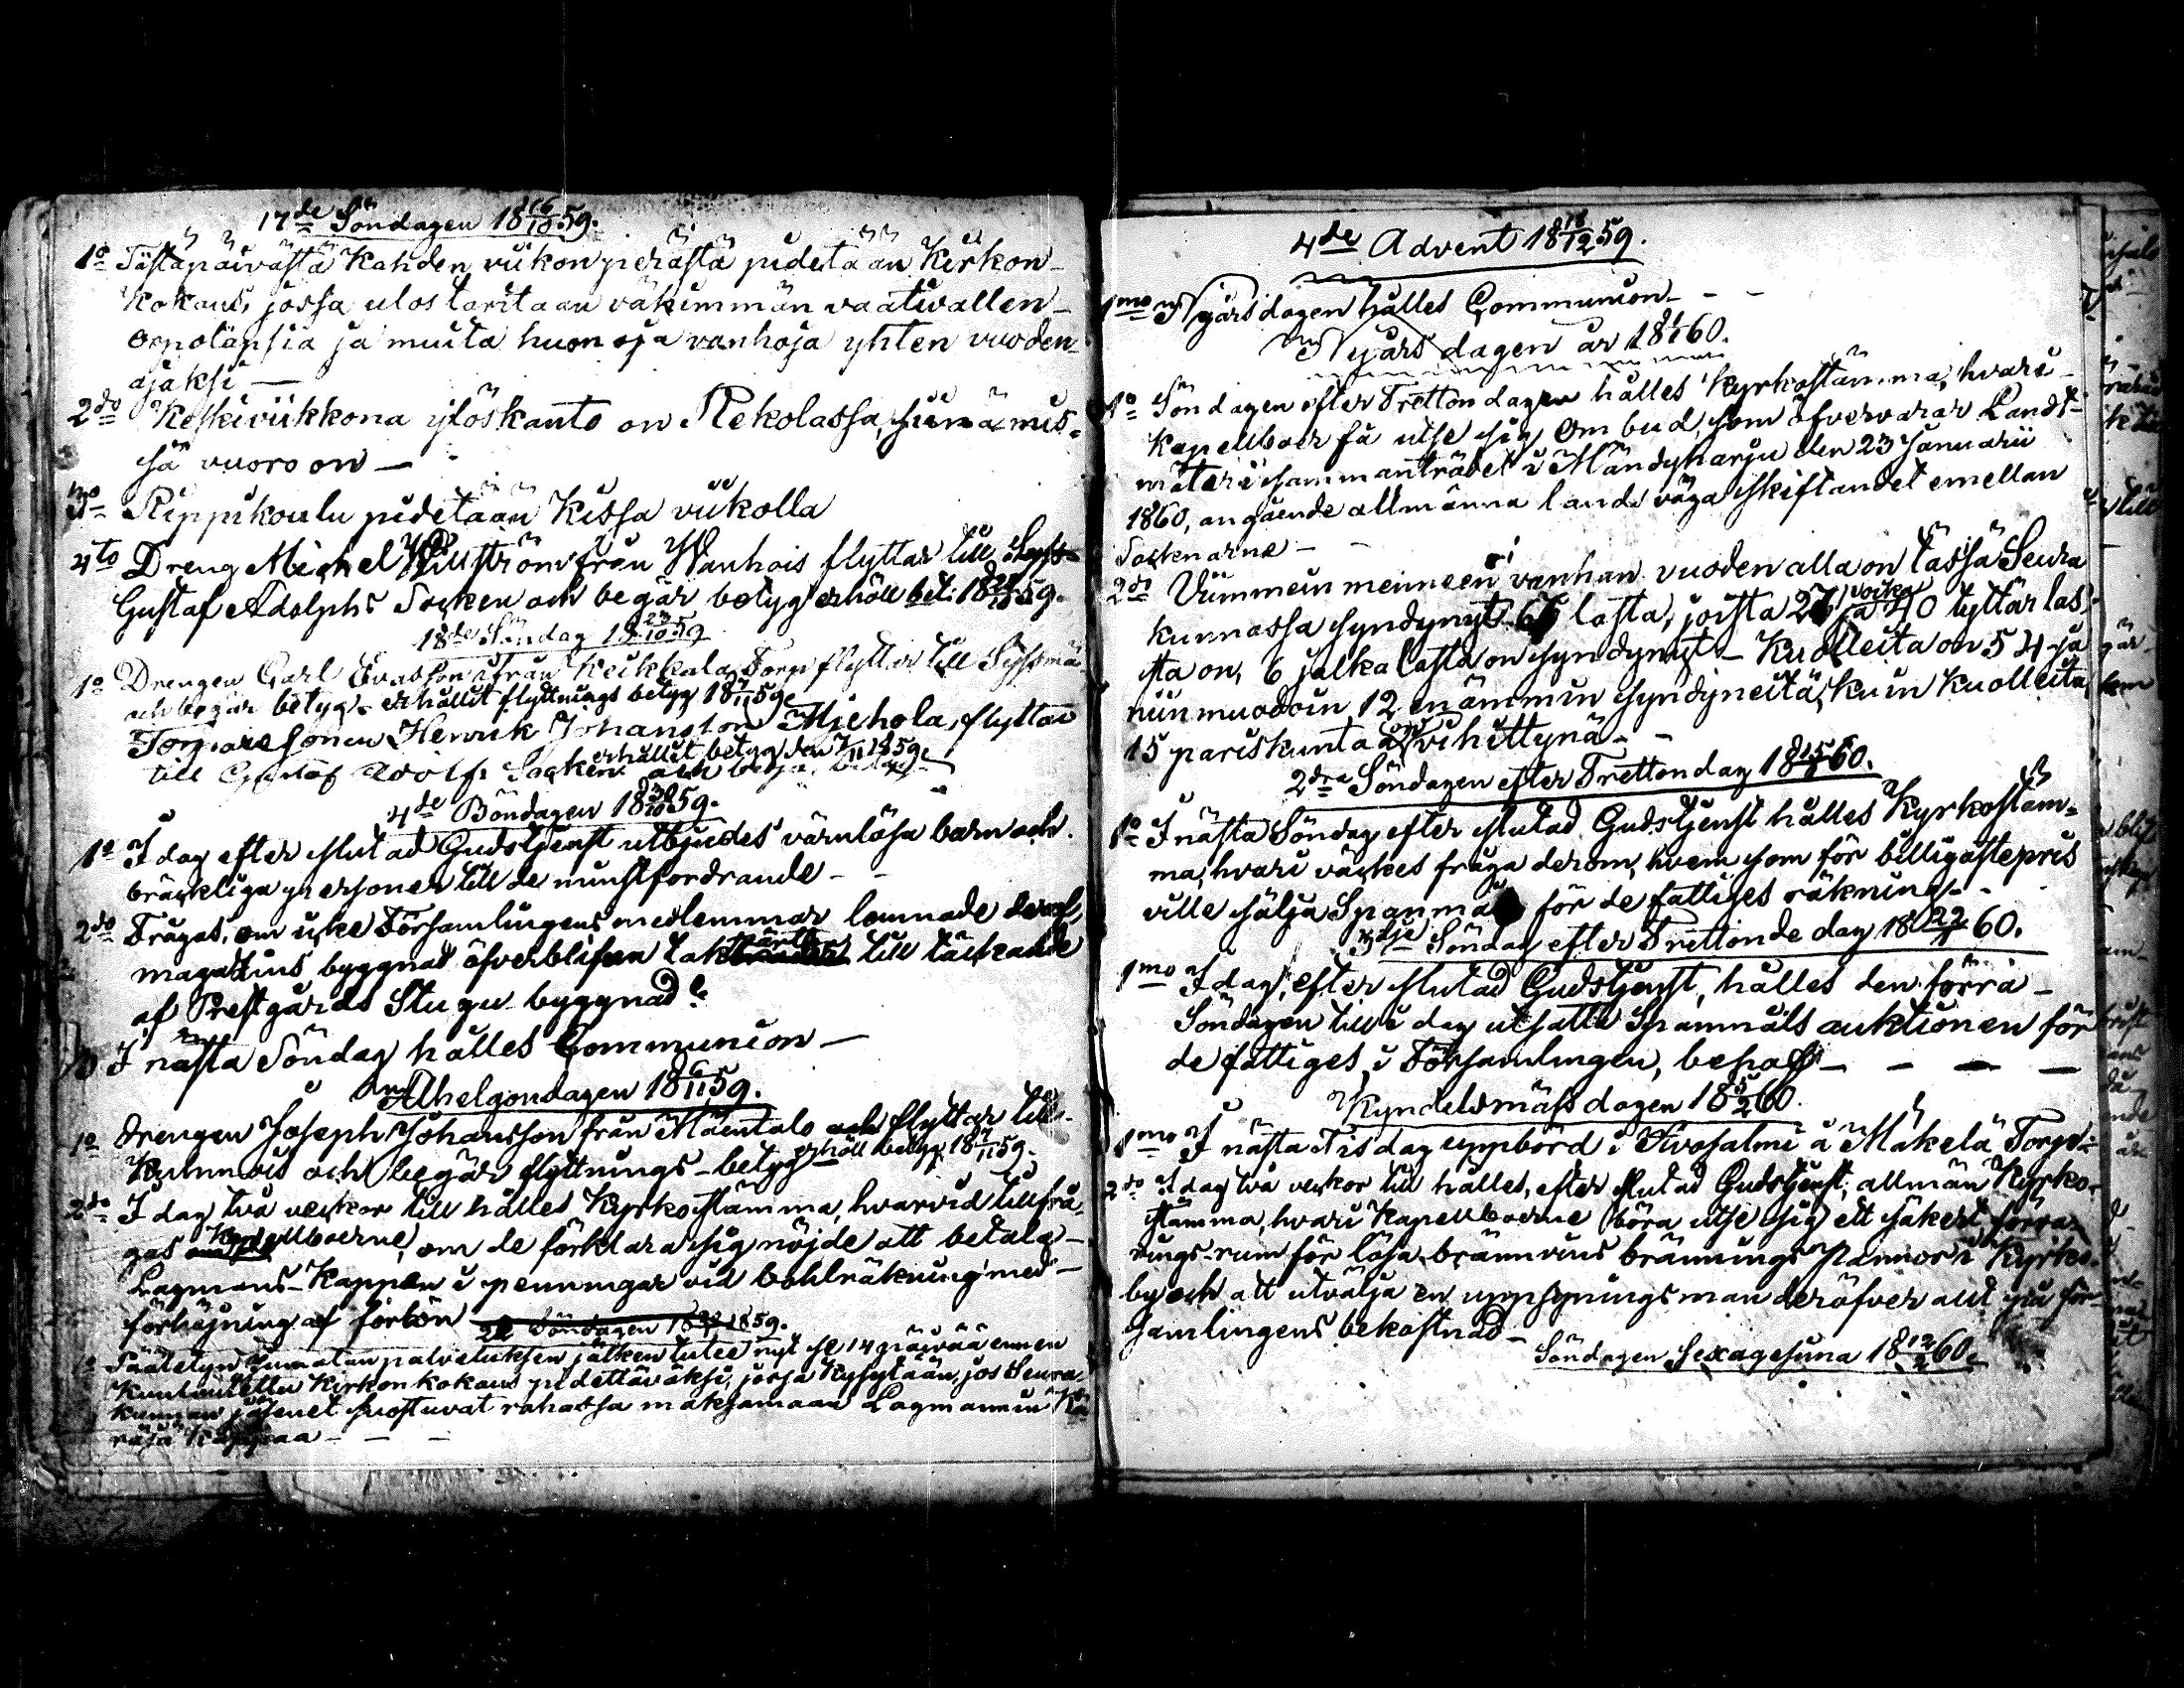 17de Söndagen 18 16/10 59.
1o Tästäpäivästä Kahden viikon perästä pidetään Kirkon-
Kokous, jossa ulos taritaan vähimmän vaativallen-
orpolapsia ja muita huonoja vanhoja yhten vuoden-
ajaksi —
2do Keskiviikkona ylöskanto on Rekolassa,
sä vuoro on —
3o Rippikoulu pidetään Kissa viikolla
4to Dreng Michel från Wanhois flyttar till
Gustaf Adolphs Socken och begär betyg erhöll bet: 18 59.
18de Söndag 18 23/10 59
1o Drengen Carl Evasson från Keikkala Torp flyttar till Syssmä
och begär betyg. erhållit flyttnings betyg 18 59.
Torparesonen Henrik Johansson Mjehola, flyttar
erhållit betyg den 7/11 1859.
till Gustaf Adolfs Socken och
4de Böndagen 18 30/10 59.
1o I dag efter slutad Gudstjenst utbjudes värnlösa barn och
bräckliga personer till de minstfordrande —
2do Frågas, om icke Församlingens medlemmar lemnade deraf,
magazins byggnad öfverblifvan tak till täckande
af Prestgårds Stugu byggnad?
3o I nästa Söndag hålles Communion —
Alhelgondagen 18 6/11 59.
1o drengen Joseph Johansson från Mäentalo och flyttar till
Kuhmois och begär flyttnings-betyg erhöll betyg 18 59.
2do I dag två veckor till hålles Kyrkostämma, hvarvid tillfrå-
gas Kapellboerne, om de förklara sig nöjde att betala-
Lagmans-Kappan i penningar vid bohlräkning med —
förhöjning af förlön
22 Söndagen 1859.
1o Säätetyn Jumalan palveluksen jälken tulee nyt se 14 päivää ennen
Kuulutettu Kirkon kokous pidettäväksi, josja Kysytään, jos Seura-
kunnan jäsenet suostuvat rahassa maksamaan Lagmannin Kä-
räjä Kappaa — — —
4de Advent 18 18/12 59.
1mo Nyårsdagen hålles Communion — —
Nyårsdagen år 18 1/1 60.
1o Söndagen efter Trettondagen hålles Kyrkostämma, hvari
Kapellboer få utse sig Ombud, som öfvervarar Landt-
mäteri sammanträdet i Mändyharju den 23 Januarii
1860, angående allmänna landsväga skiftandet emellan
Socknarne — —
2do Viimmein menneen vanhan vuoden alla on tässä Seura
kunnassa syndynyt 67 lasta, joista 27 poika ja 40 tyttärlas-
ta on, 6 jalkalasta on syndynyt — Kuolleita on 54 ja
niin muodoin 12 enämmin syndyneitä, kuin Kuolleita
15 pariskuntaa on vihittynä —
2dra Söndagen efter Trettondag 18 15/1 60.
1o I nästa Söndag efter slutad Gudstjenst hålles Kyrkostäm-
ma, hvari väckes fråga derom, hvem som för billigaste pris
ville sälja Spanmål för de fattiges räkning. —
3dje Söndag efter Trettonde dag 18 22/1 60.
1mo I dag, efter slutad Gudstjenst, hålles den förra —
Söndagen till i dag utsatte Spannmåls auktionen för
de fattiges, i Församlingen, behof — — — —
Kyndelsmäss dagen 18 5/2 60.
1mo I nästa Tisdag uppbörd i Hirvosalmi å Mäkelä Torp. —
2do I dag två veckor till hålles, efter slutad Gudstjenst, allmän Kyrko-
stämma, hvari Kapellboerne böra utse sig ett säkert förva-
rings-rum för lösa brännvins brännings pannor i Kyrko-
by och att utvälja en uppsyningsman deröfver allt på för-
samlingens bekostnad —
Söndagen Sexagesima 18 12/2 60.